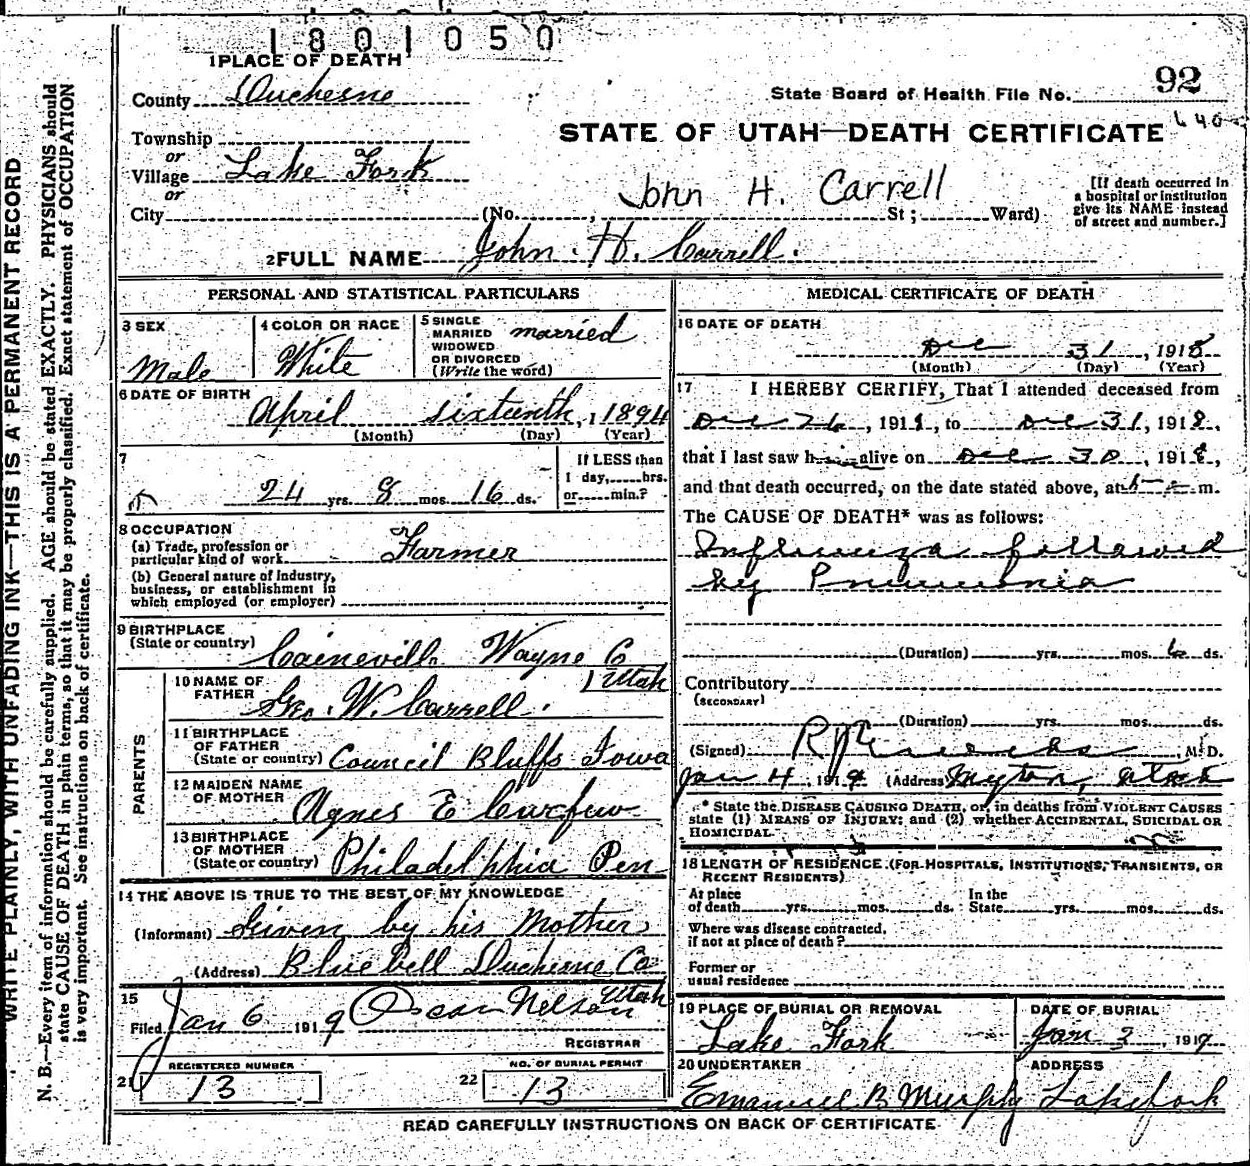 1801050
1 PLACE OF DEATH
County Duchesne
State Board of Health File No. 92
Township
or
Village Lake Fork
or
City (No. , St; Ward)
STATE OF UTAH—DEATH CERTIFICATE
John H. Carrell
[If death occurred in
a hospital or institution
give its NAME instead
of street and number.]
2 FULL NAME John H. Carrell.
PERSONAL AND STATISTICAL PARTICULARS
3 SEX
Male
4 COLOR OR RACE
White
5 SINGLE
MARRIED
WIDOWED
OR DIVORCED
(Write the word)
married
6 DATE OF BIRTH
April sixteenth, 1894
(Month) (Day) (Year)
7
24 yrs. 8 mos. 16 ds.
If LESS than
1 day, hrs.
or min.?
8 OCCUPATION
(a) Trade, profession or
particular kind of work Farmer
(b) General nature of industry,
business, or establishment in
which employed (or employer)
9 BIRTHPLACE
(State or country) Caineville Wayne Co
Utah
PARENTS
10 NAME OF
FATHER Geo. W. Carrell.
11 BIRTHPLACE
OF FATHER
(State or country) Council Bluffs Iowa
12 MAIDEN NAME
OF MOTHER Agnes E
13 BIRTHPLACE
OF MOTHER
(State or country) Philadelphia Pen
14 THE ABOVE IS TRUE TO THE BEST OF MY KNOWLEDGE
(Informant) Given by his Mother
(Address) Bluebell Duchesne Co
Utah
15
Filed Jan 6 1919 Oscar Nelson
REGISTRAR
21 REGISTERED NUMBER
13
22 NO. OF BURIAL PERMIT
13
MEDICAL CERTIFICATE OF DEATH
16 DATE OF DEATH
Dec 31, 1918
(Month) (Day) (Year)
17 I HEREBY CERTIFY, That I attended deceased from
Dec 26, 1918, to Dec 31, 1918,
that I last saw him alive on Dec 30, 1918,
and that death occurred, on the date stated above, at m.
The CAUSE OF DEATH* was as follows:
Influenza followed
by Pneumonia
(Duration) yrs. mos. 6 ds.
Contributory
(SECONDARY)
(Duration) yrs. mos. ds.
(Signed) M.D.
Jan 4 1919 (Address) Myton, Utah
* State the DISEASE CAUSING DEATH, or, in deaths from VIOLENT CAUSES
state (1) MEANS OF INJURY; and (2) whether ACCIDENTAL, SUICIDAL OR
HOMICIDAL
18 LENGTH OF RESIDENCE (FOR HOSPITALS, INSTITUTIONS, TRANSIENTS, OR
RECENT RESIDENTS)
At place
of death yrs. mos. ds.
In the
State yrs. mos. ds.
Where was disease contracted,
if not at place of death?
Former or
usual residence
19 PLACE OF BURIAL OR REMOVAL
Lake Fork
DATE OF BURIAL
Jan 3, 1919
20 UNDERTAKER
Emanuel B Murphy
ADDRESS
Lakefork
READ CAREFULLY INSTRUCTIONS ON BACK OF CERTIFICATE
WRITE PLAINLY, WITH UNFADING INK—THIS IS A PERMANENT RECORD
N. B.—Every item of information should be carefully supplied. AGE should be stated EXACTLY. PHYSICIANS should
state CAUSE OF DEATH in plain terms, so that it may be properly classified. Exact statement of OCCUPATION
is very important. See instructions on back of certificate.